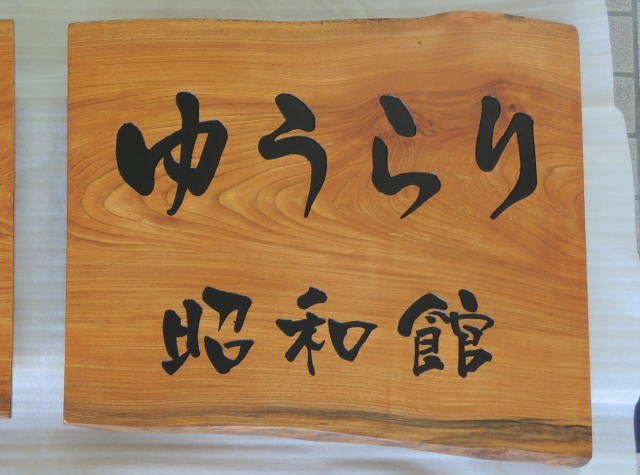 ゆうらり
昭和館